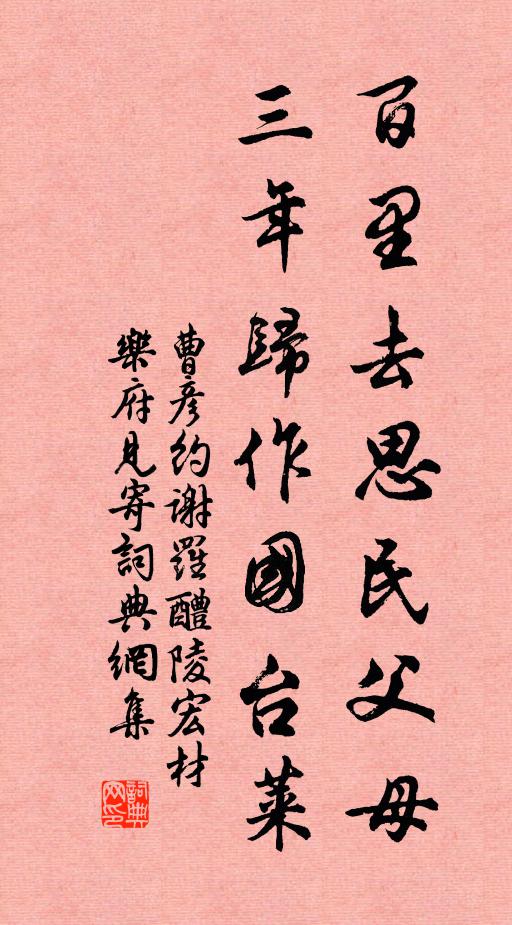 百里去思民父母
三年歸作國台萊
曹彦約谢羅醴陵宏材
樂府見寄詞典網集
詞典网印